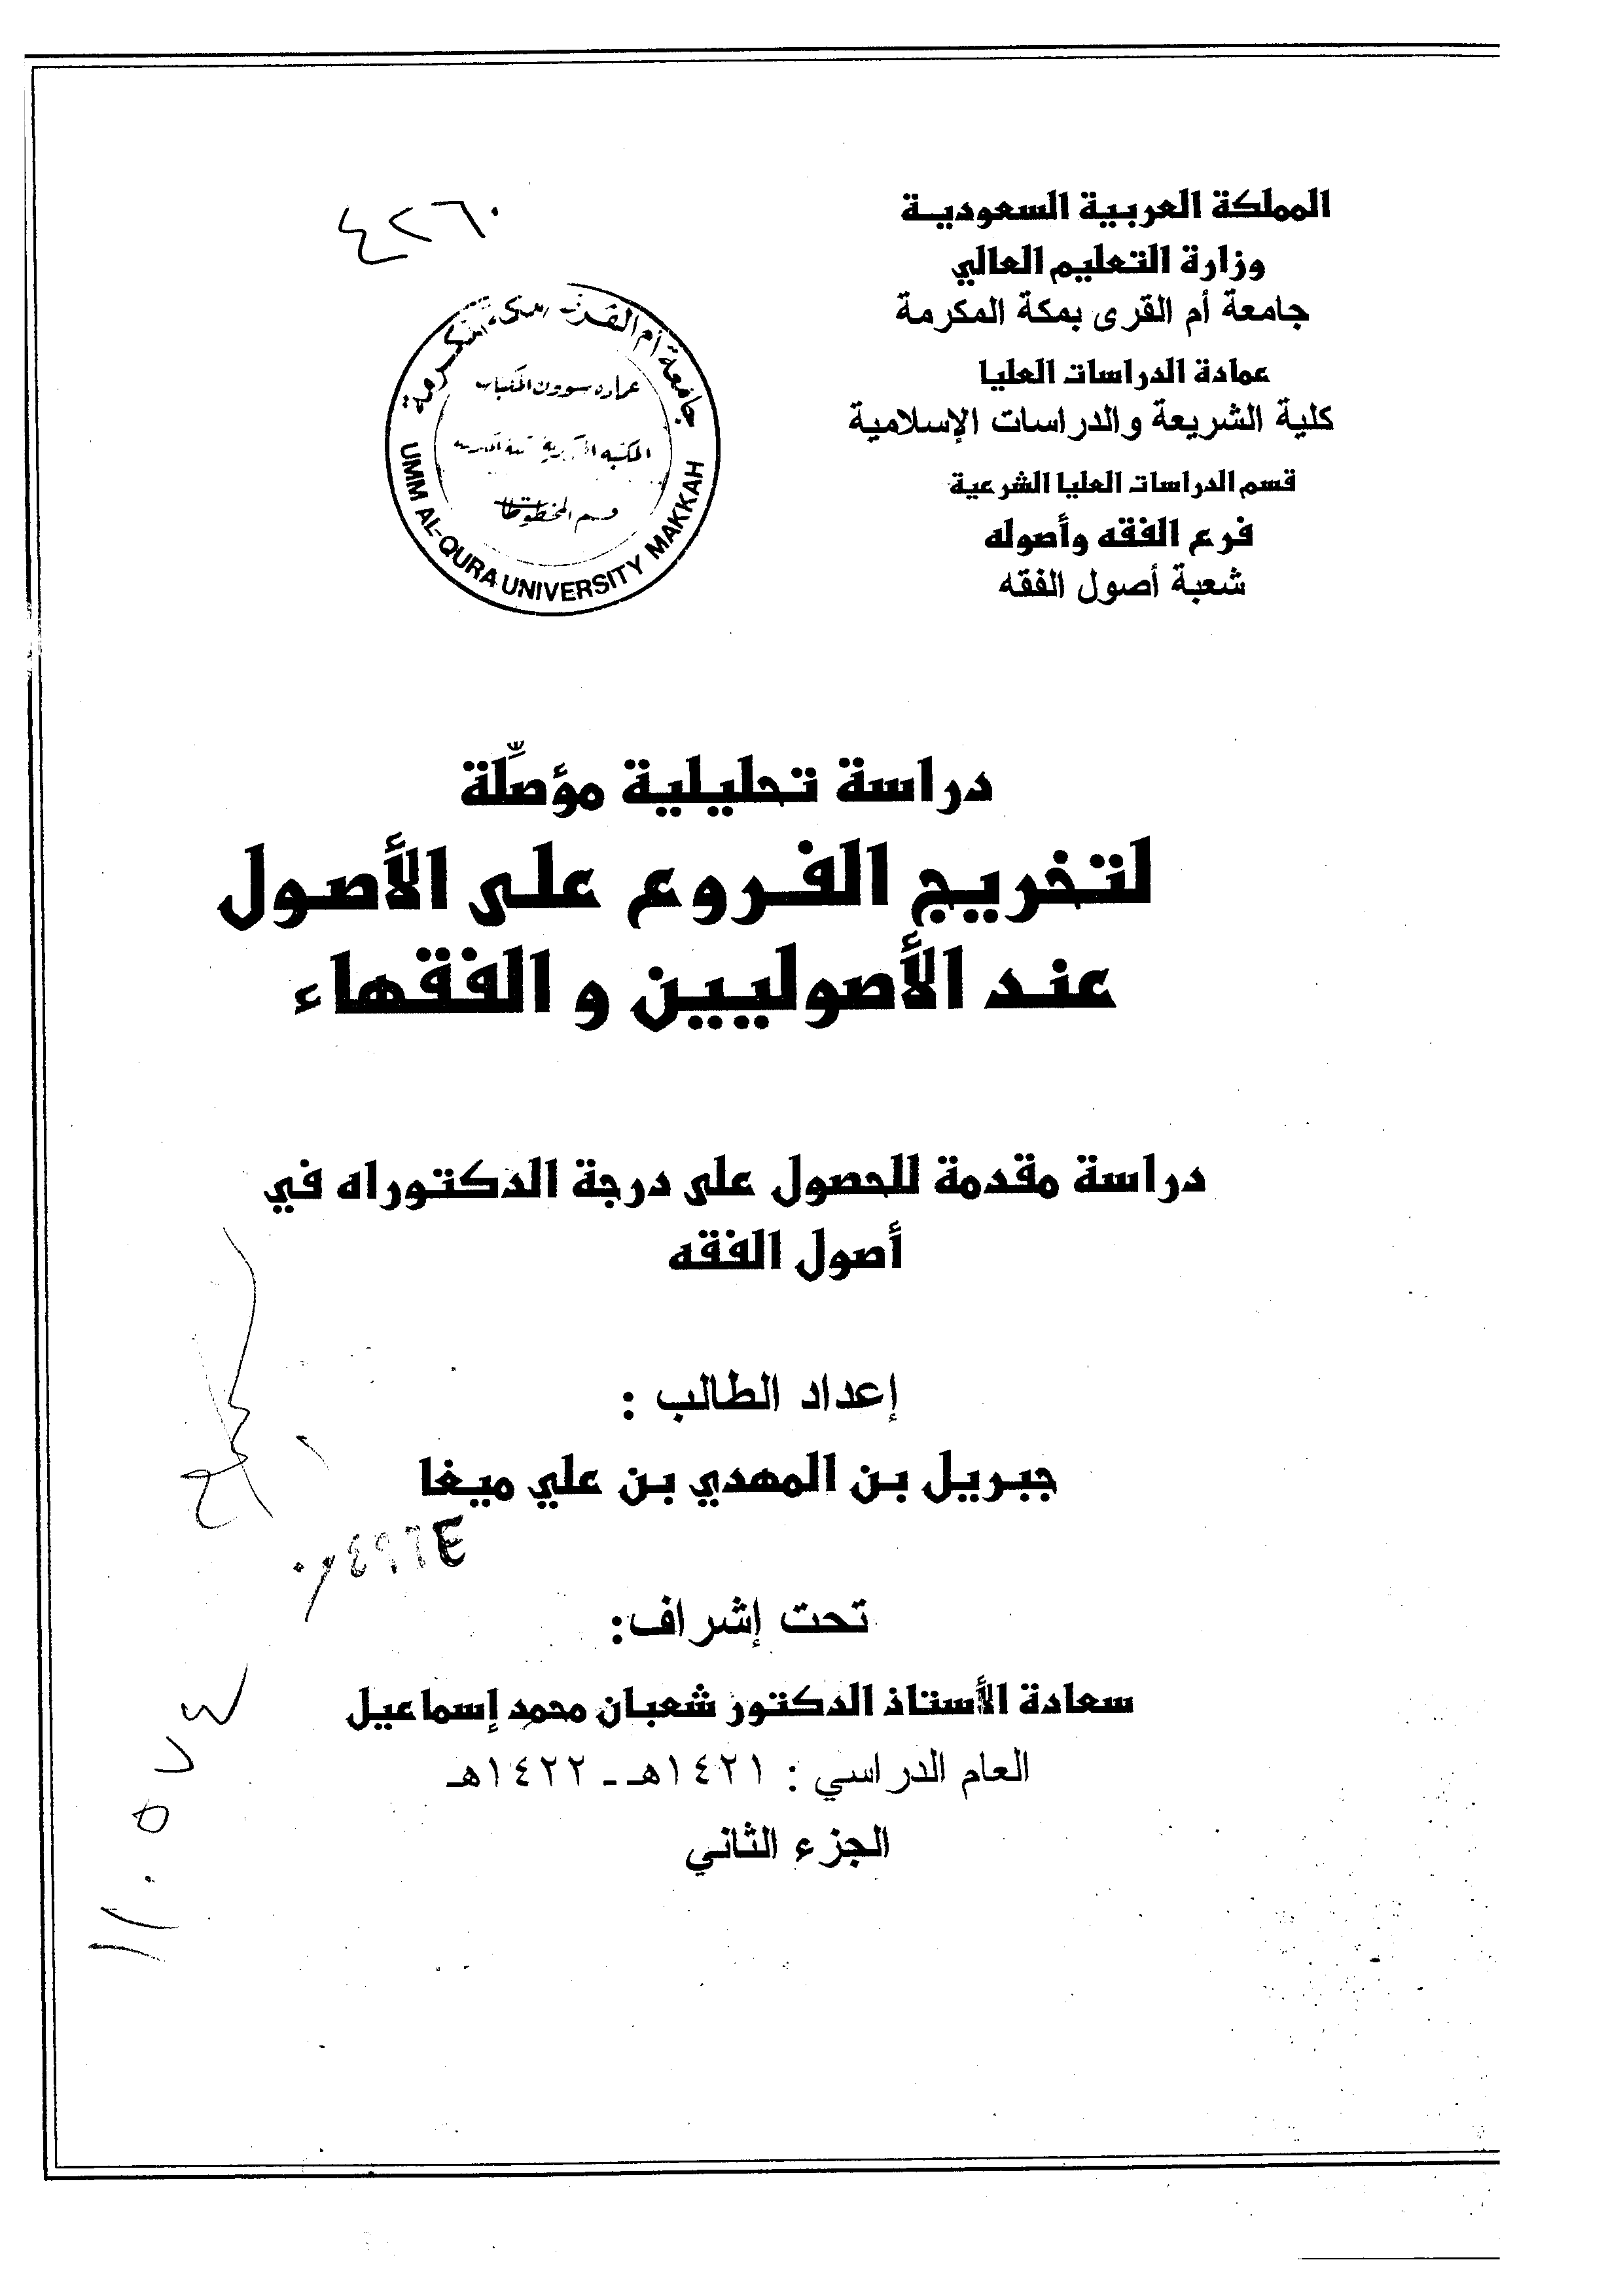 المملكة العربية السعودية
وزارة التعليم العالي
جامعة أم القرى بمكة المكرمة
عمادة الدراسات العليا
كلية الشريعة والدراسات الإسلامية
قسم الدراسات العليا الشرعية
فرع الفقه وأصوله
شعبة أصول الفقه
٤٢٦٠
جامعة أم القرى بمكة المكرمة
عمادة شؤون المكتبات
المكتبة المركزية
قسم المخطوطات
UMM AL-QURA UNIVERSITY MAKKAH
دراسة تحليلية مؤصّلة
لتخريج الفروع على الأصول
عند الأصوليين و الفقهاء
دراسة مقدمة للحصول على درجة الدكتوراه في
أصول الفقه
إعداد الطالب :
جبريل بن المهدي بن علي ميغا
تحت إشراف:
سعادة الأستاذ الدكتور شعبان محمد إسماعيل
العام الدراسي : ١٤٢١هـ ـ ١٤٢٢هـ
الجزء الثاني